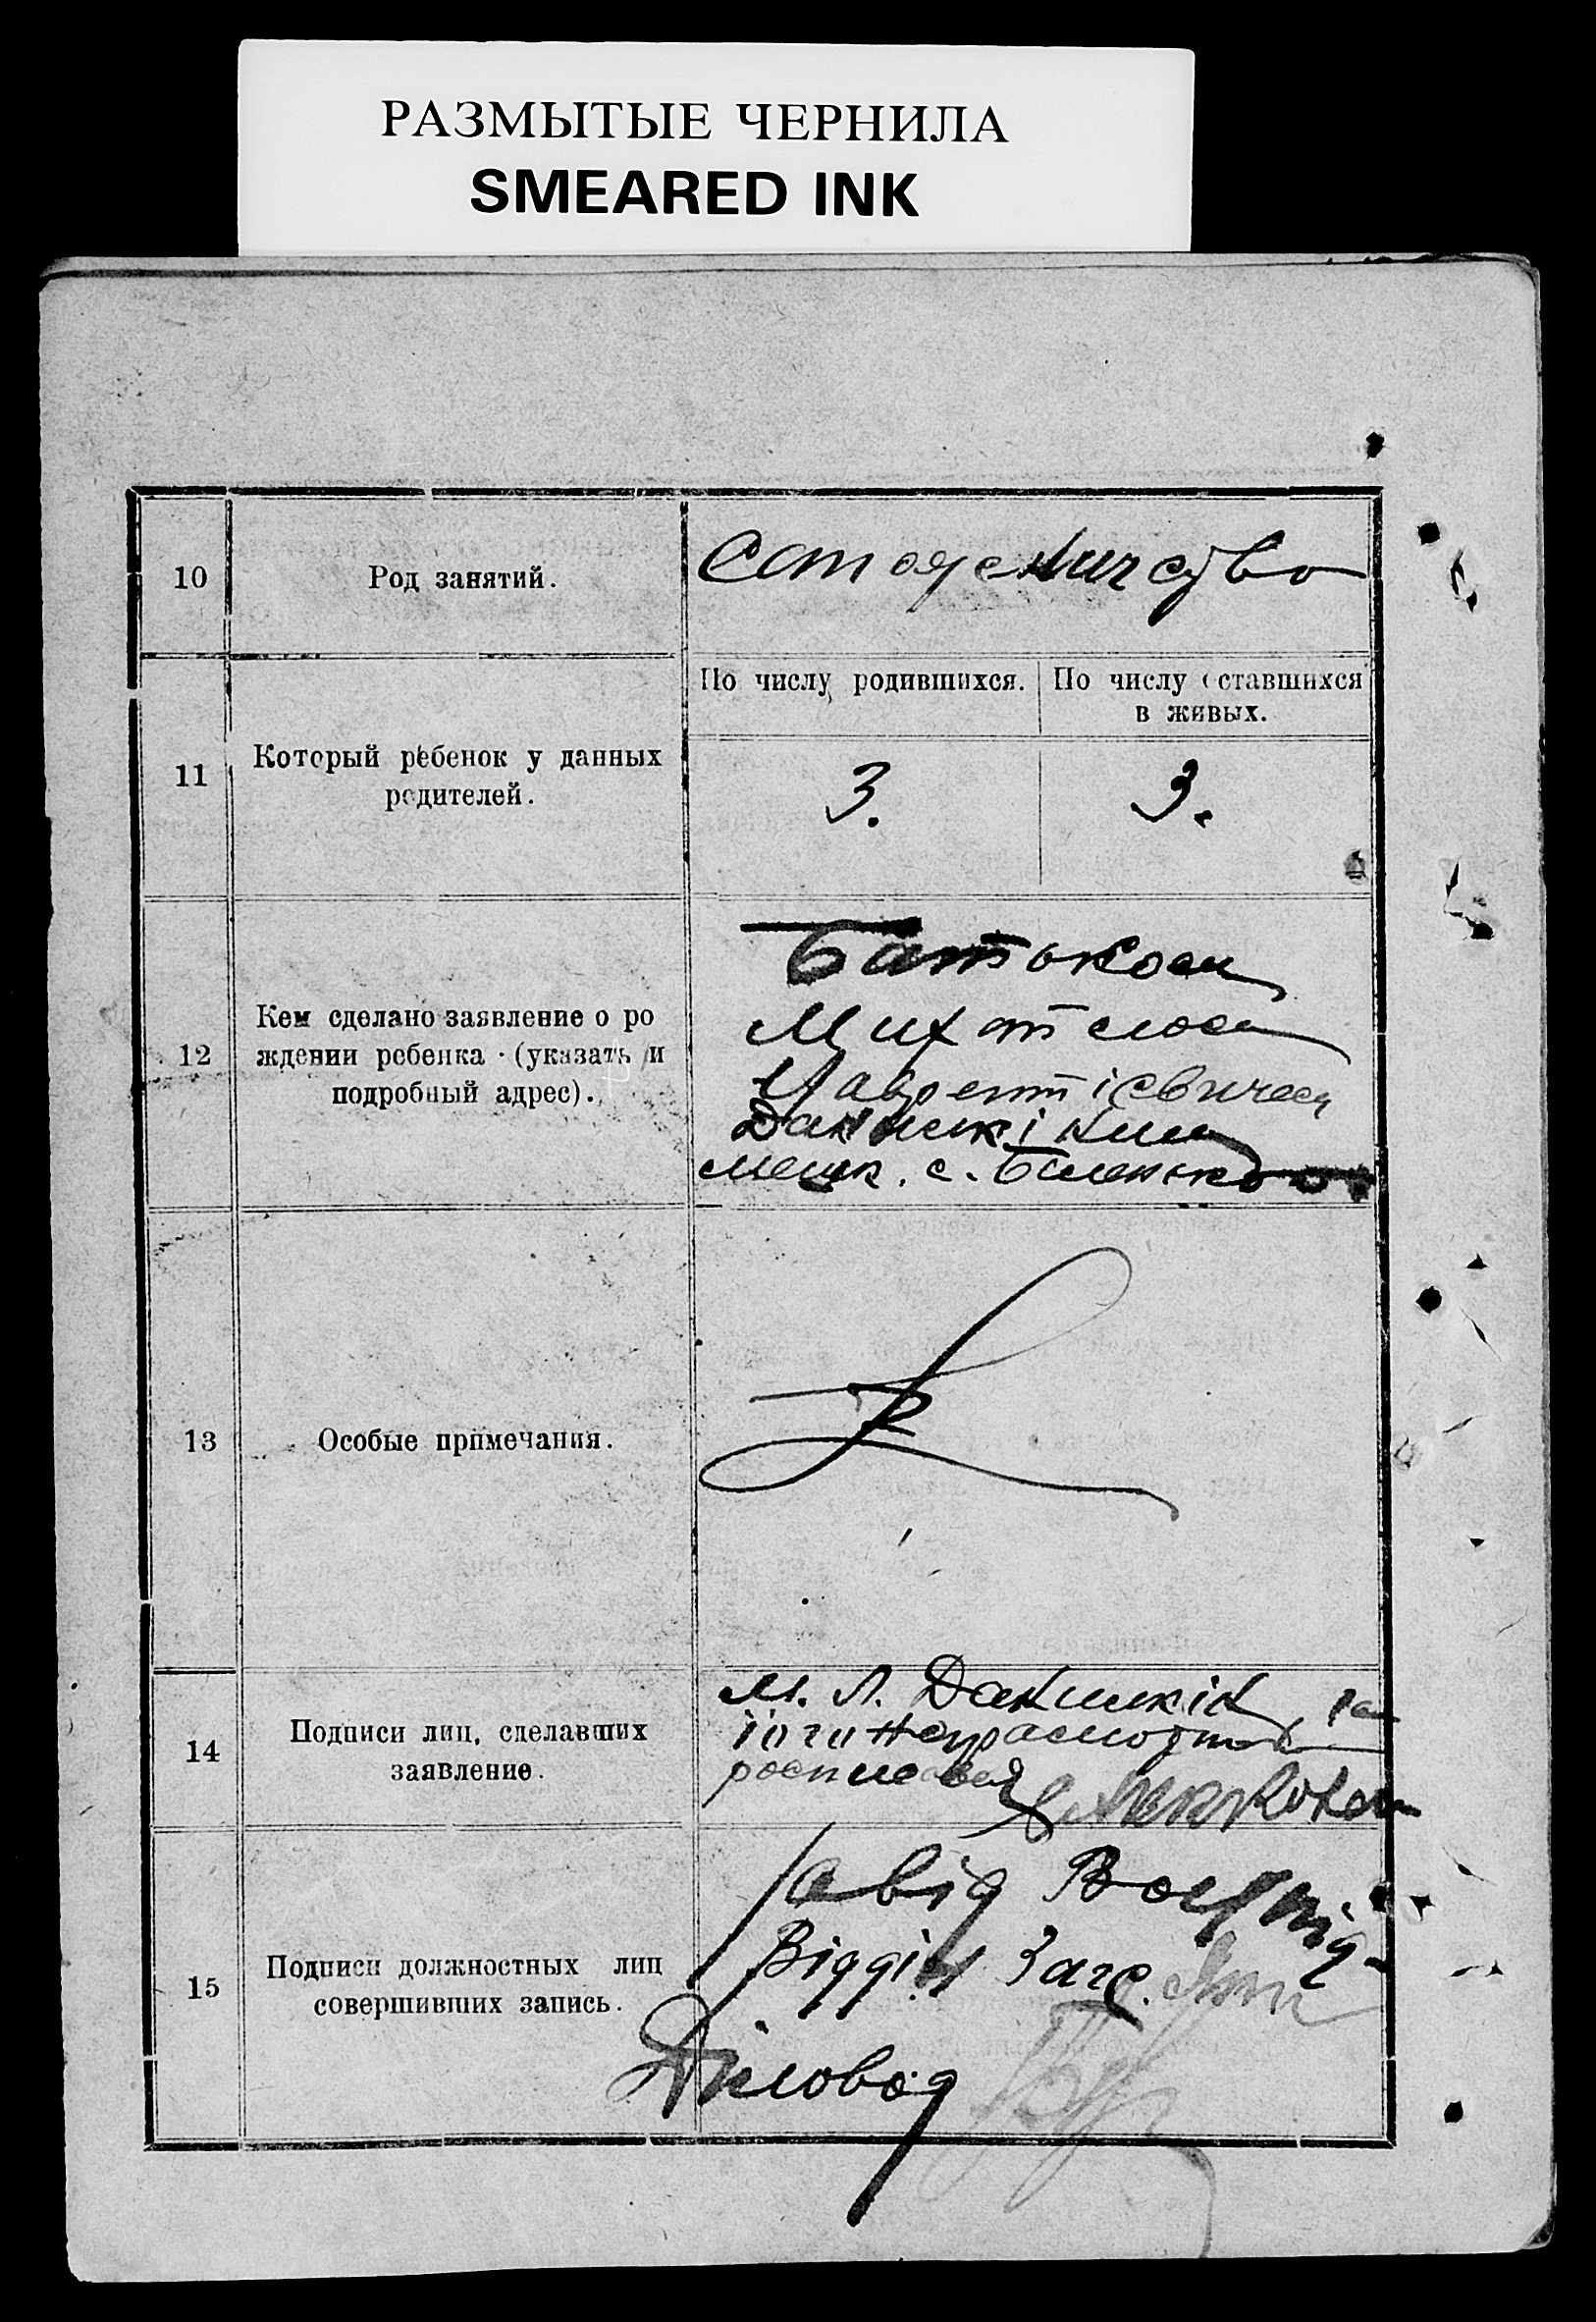 РАЗМЫТЫЕ ЧЕРНИЛА
SMEARED INK
10
Род занятий.
11
Который ребенок у данных
родителей.
По числу родившихся.
По числу оставшихся
в живых.
3.
3.
12
Кем сделано заявление о ро
ждении ребенка (указать и
подробный адрес).
Батьком
Михайлом
Лаврентієвичем
Данишкіним
мешк. с.
13
Особые примечания.
14
Подписи лиц, сделавших
заявление.
М. Л. Данишкін, за
його неграмотн
росписався
15
Подписи должностных лиц
совершивших запись.
Завід
Відділ Загс.
Діловод